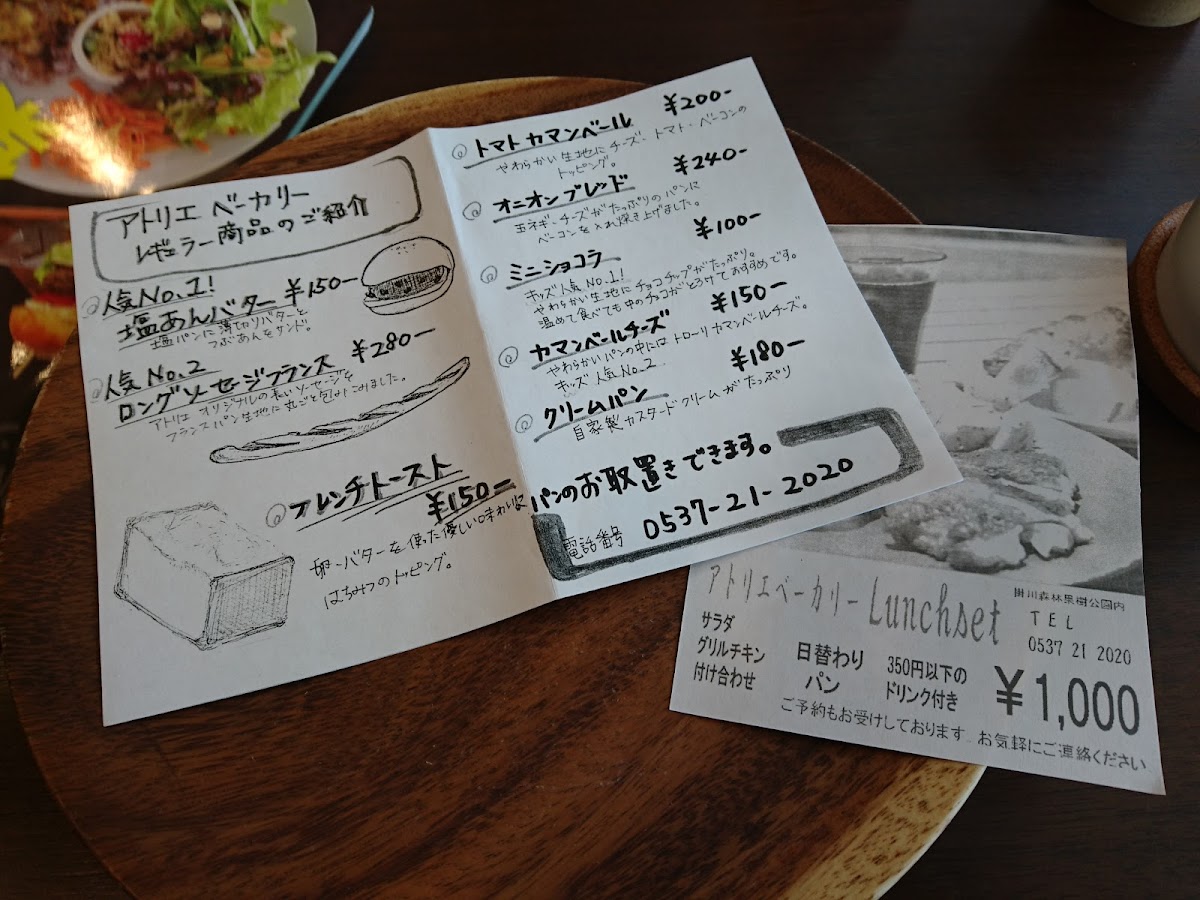 アトリエ ベーカリー
レギュラー商品のご紹介
人気No.1!
塩あんバター ¥150ー
塩パンに薄切りバターと
つぶあんをサンド。
人気No.2
ロングソーセージフランス ¥280ー
アトリエ オリジナルの長いソーセージを
フランスパン生地に丸ごと包みこみました。
フレンチトースト
¥150ー
卵・バターを使った優しい味わいに
はちみつのトッピング。
トマトカマンベール ¥200ー
やわらかい生地にチーズ・トマト・ベーコンの
トッピング。
オニオンブレッド ¥240ー
玉ネギ、チーズがたっぷりのパンに
ベーコンを入れ焼き上げました。
ミニショコラ ¥100ー
キッズ人気NO.1!
やわらかい生地にチョコチップがたっぷり。
温めて食べても中のチョコがとろけておすすめです。
カマンベールチーズ ¥150ー
やわらかいパンの中にはトローリカマンベールチーズ。
キッズ人気No.2
クリームパン ¥180ー
自家製カスタードクリームがたっぷり
パンのお取置きできます。
電話番号 0537-21-2020
アトリエベーカリー Lunchset
掛川森林果樹公園内
TEL
0537 21 2020
サラダ
グリルチキン
付け合わせ
日替わり
パン
350円以下の
ドリンク付き
¥1,000
ご予約もお受けしております お気軽にご連絡ください